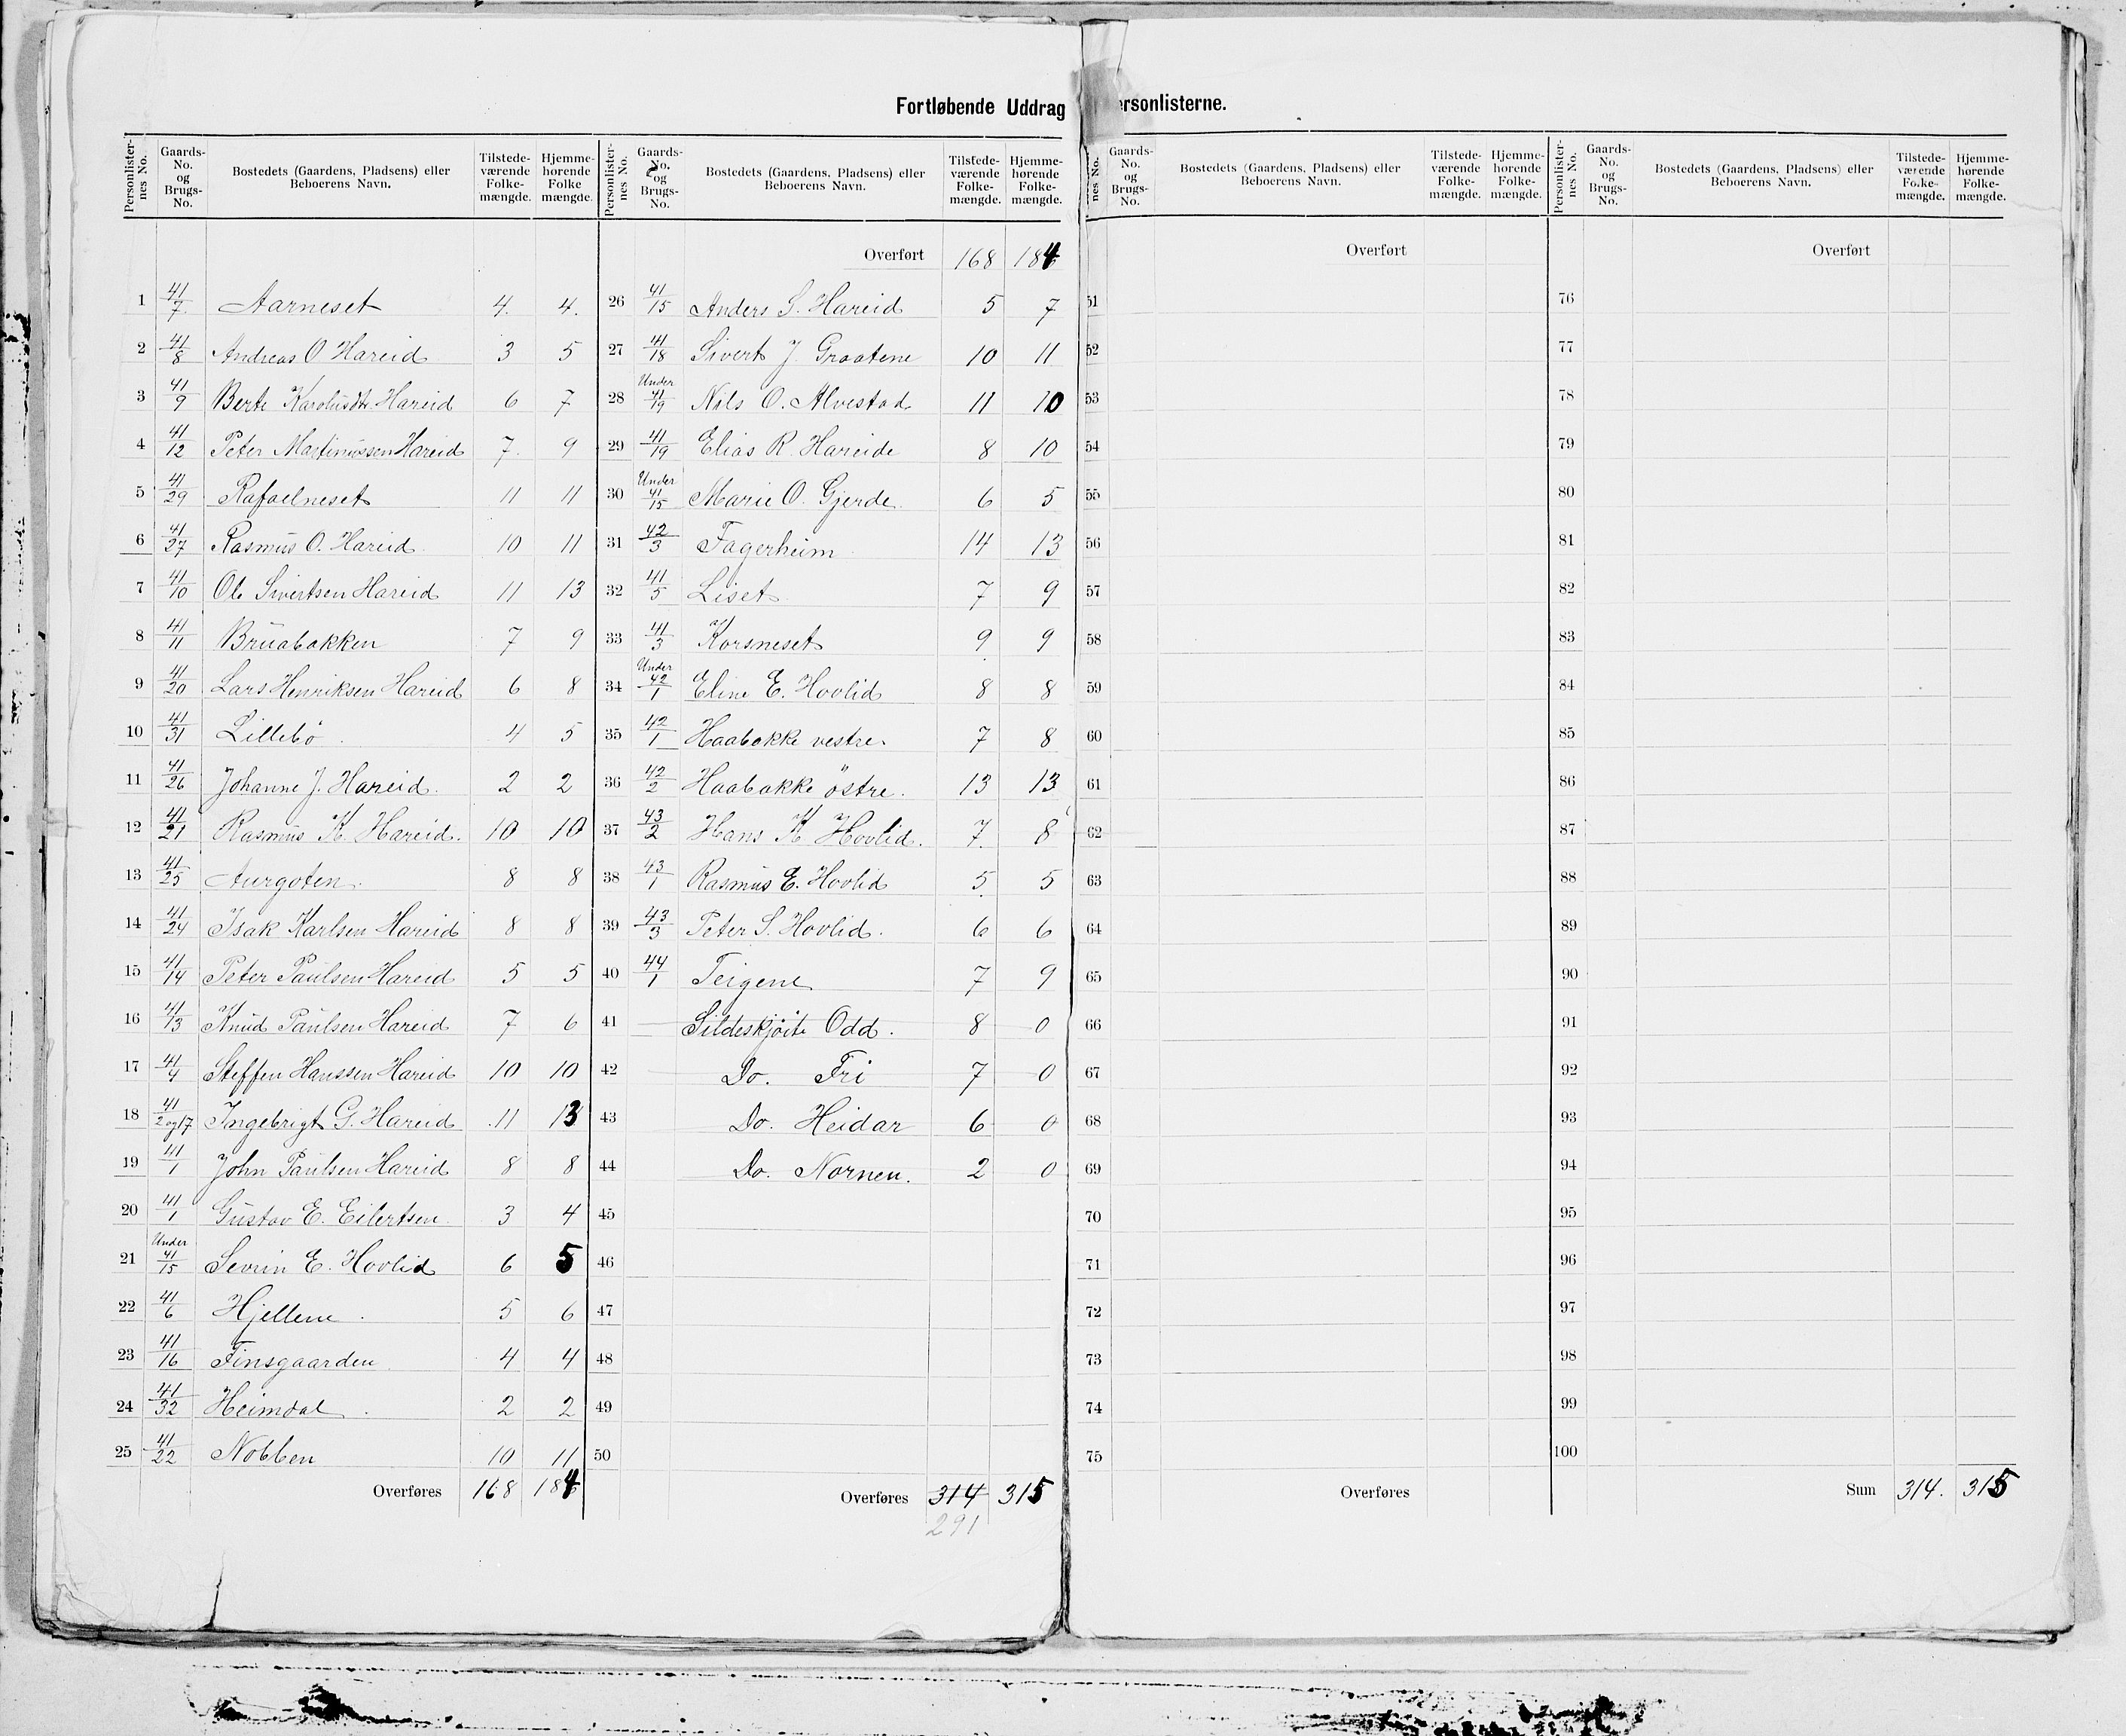 Fortløbende Uddrag ersonlisterne.
Personlister-nes No. | Gaards-No. og Brugs-No. | Bostedets (Gaardens, Pladsens) eller Beboerens Navn. | Tilstede-værende Folke-mængde. | Hjemme-hørende Folke mængde.
1 41/7 Aarneset 4. 4.
2 41/8 Andreas O Hareid 3 5
3 41/9 Berte Karolusdtr Hareid 6 7
4 41/12 Peter Martinussen Hareid 7. 9
5 41/29 Rafaelneset 11 11
6 41/27 Rasmus O. Hareid 10 11
7 41/10 Ole Sivertsen Hareid 11 13
8 41/11 Bruabakken 7 9
9 41/20 Lars Henriksen Hareid 6 8
10 41/31 Lillebö 4 5
11 41/26 Johanne J. Hareid. 2 2
12 41/21 Rasmus K. Hareid. 10 10
13 41/25 Aurgoten. 8 8
14 41/24 Isak Karlsen Hareid 8 8
15 41/14 Peter Paulsen Hareid 5 5
16 41/13 Knud Paulsen Hareid 7 6
17 41/4 Steffen Hanssen Hareid 10 10
18 41/2 og 17 Ingebrigt G. Hareid 11 13
19 41/1 John Paulsen Hareid 8 8
20 41/1 Gustav E. Eilertsen 3 4
21 Under 41/15 Sevrin E. Hovlid 6 5
22 41/6 Hjellene 5 6
23 41/16 Finsgaarden 4 4
24 41/32 Heimdal 2 2
25 41/22 Nobben 10 11
Overføres 168 184
Personlister-nes No. | Gaards-No. og Brugs-No. | Bostedets (Gaardens, Pladsens) eller Beboerens Navn. | Tilstede-værende Folke-mængde. | Hjemme-hørende Folke-mængde.
Overført 168 184
26 41/15 Anders S. Hareid 5 7
27 41/18 Sivert J. Graatene 10 11
28 Under 41/19 Nils O. Alvestad 11 10
29 41/19 Elias R. Hareide 8 10
30 Under 41/15 Marie O. Gjerde 6 5
31 42/3 Fagerheim 14 13
32 41/5 Liset 7 9
33 41/3 Korsneset 9 9
34 Under 42/1 Eline E. Hovlid 8 8
35 42/1 Haabakke vestre 7 8
36 42/2 Haabakke östre. 13 13
37 43/2 Hans K Hovlid. 7. 8
38 43/1 Rasmus E. Hovlid 5 5
39 43/3 Peter S. Hovlid. 6 6
40 44/1 Teigene 7 9
41 Sildeskjöite Odd. 8 0
42 Do. Fri 7 0
43 Do. Heidar 6 0
44 Do. Nornen. 2 0
45
46
47
48
49
50
Overføres 314 315
291
nes No. | Gaards-No. og Brugs-No. | Bostedets (Gaardens, Pladsens) eller Beboerens Navn. | Tilstede-værende Folke-mængde. | Hjemme-hørende Folke-mængde.
Overført
51
52
53
54
55
56
57
58
59
60
61
62
63
64
65
66
67
68
69
70
71
72
73
74
75
Overføres
Personlister-nes No. | Gaards-No. og Brugs-No. | Bostedets (Gaardens, Pladsens) eller Beboerens Navn. | Tilstede-værende Folke-mængde. | Hjemme-hørende Folke-mængde.
Overført
76
77
78
79
80
81
82
83
84
85
86
87
88
89
90
91
92
93
94
95
96
97
98
99
100
Sum 314. 315